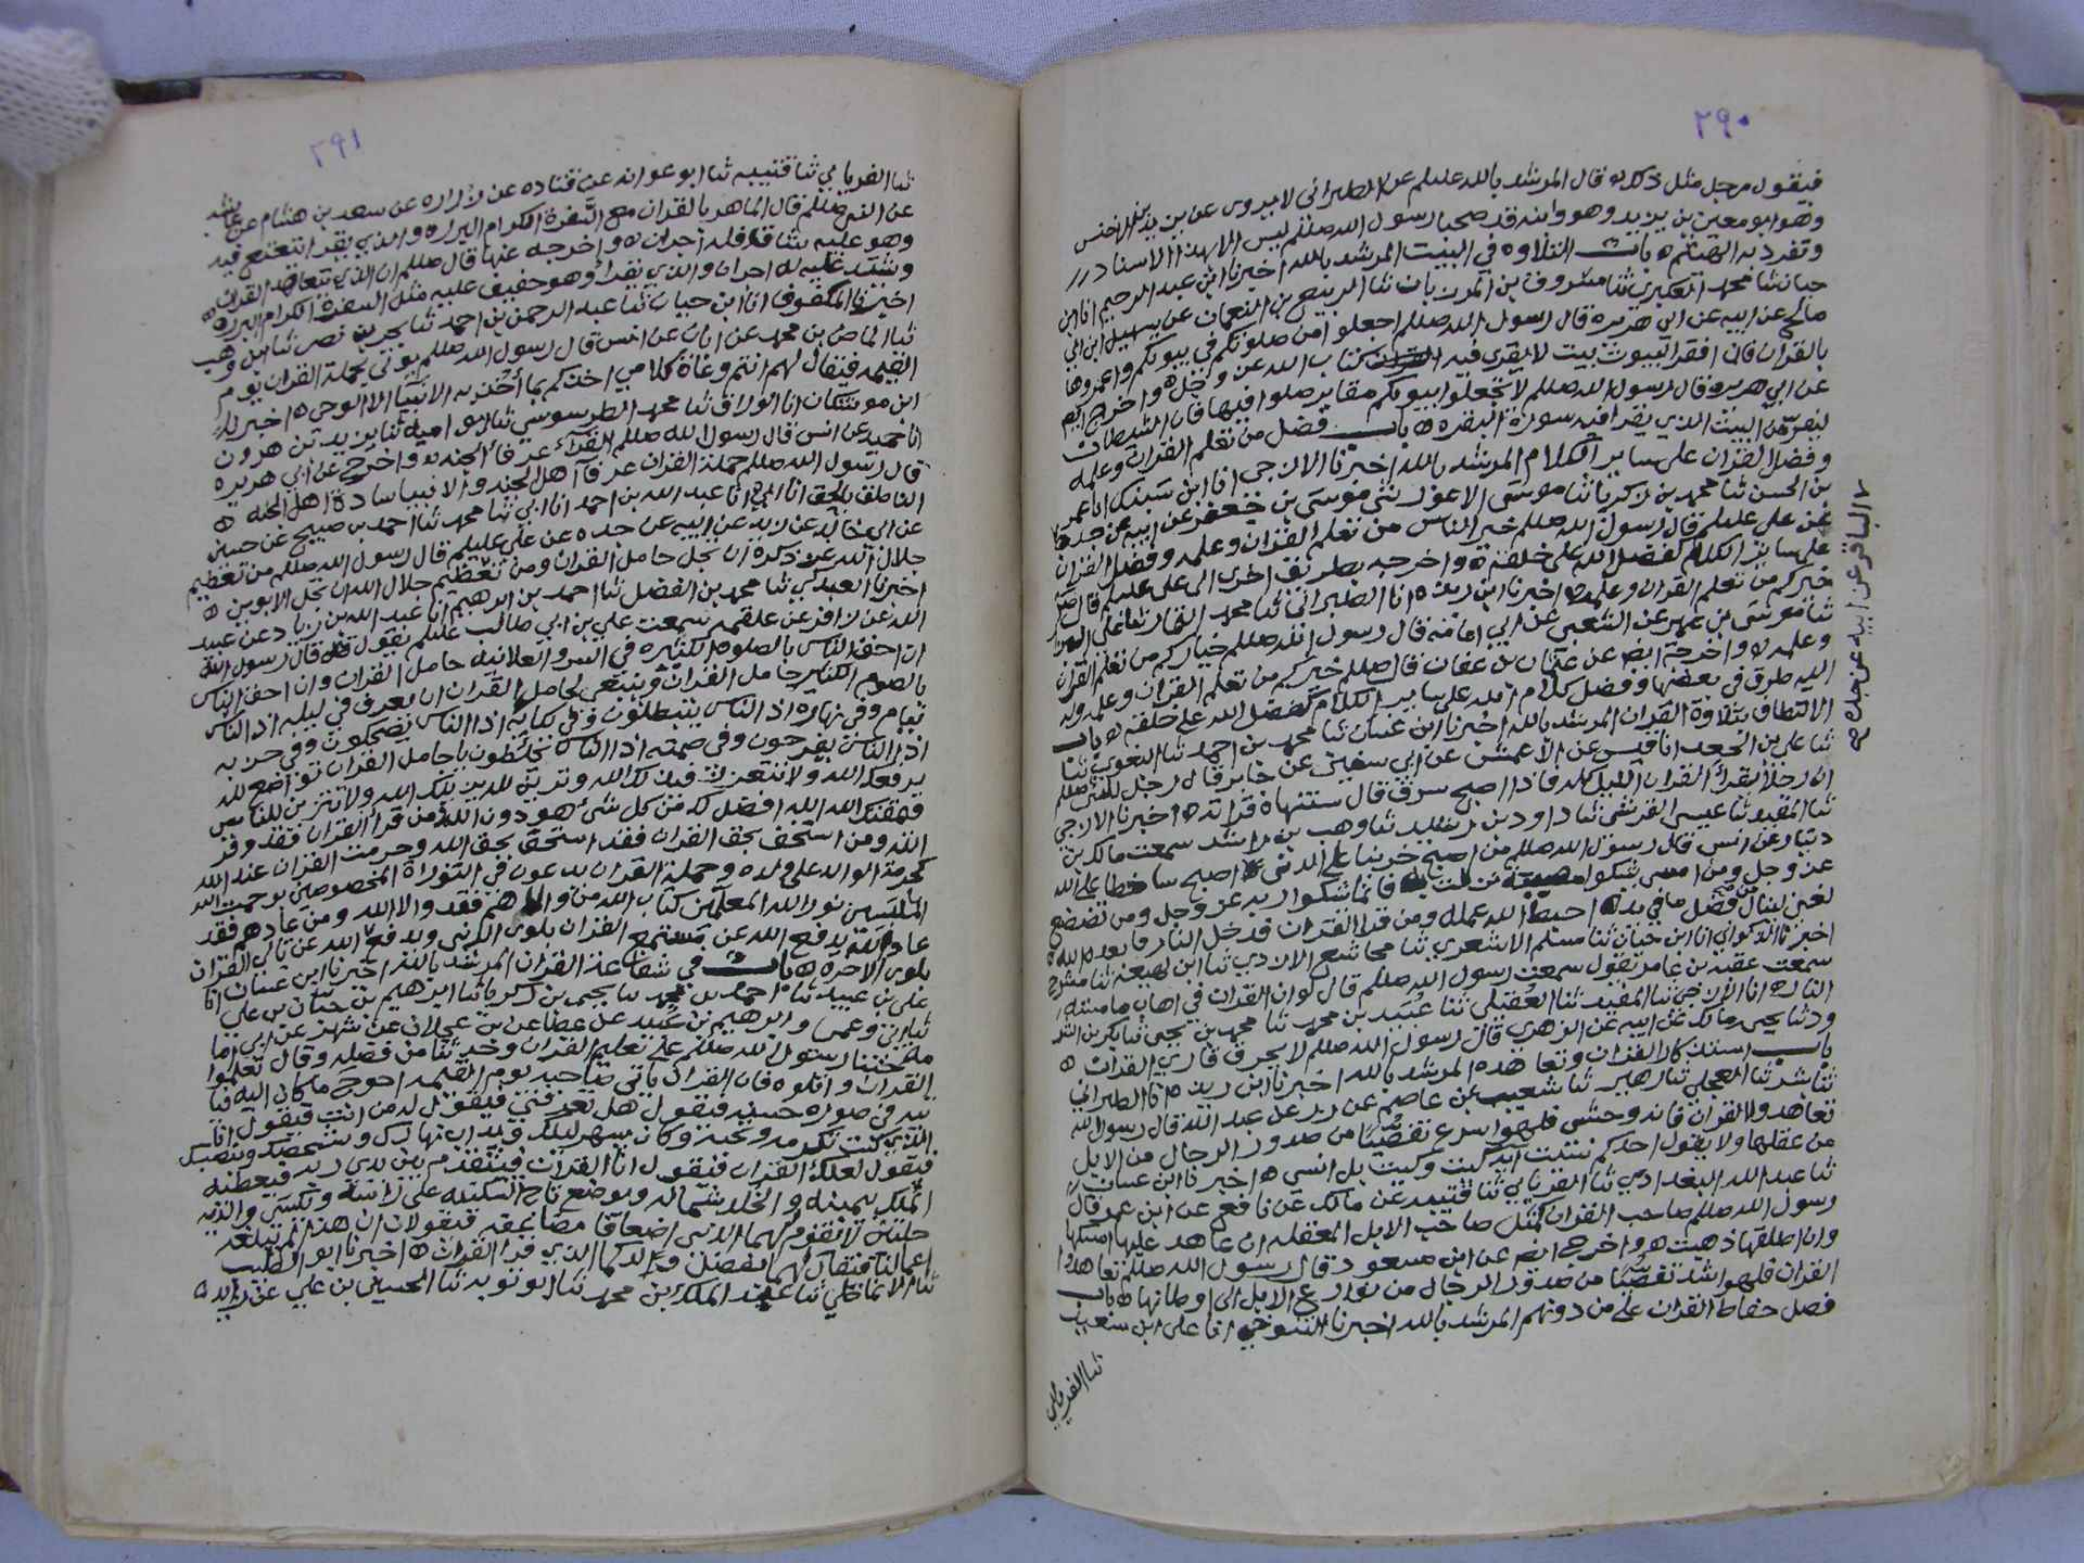 ٢٩٠
فيقول رجل مثل ذلك ه قال المرشد بالله عليلم عن الطبراني لا يروى عن يزيد بن الاخنس
وهو ابو معين بن يزيد وهو وابنه قد صحبا رسول الله صللم ليس الا بهذا الاسناد
وتفرد به الهيثم ه باب التلاوه في البيت المرشد بالله اخبرنا ابن عبد الرحيم انا ابن
حيان ثنا محمد العكبري ثنا مسروق بن المرزبان ثنا الربيع بن النعمان عن سهيل ابن ابي
صالح عن ابيه عن ابي هريره قال رسول الله صللم اجعلوا من صلوتكم في بيوتكم واعمروها
بالقران فان افقر البيوت بيت لا يقرى فيه كتاب الله عز وجل ه واخرج
عن ابي هريره قال رسول الله صللم لا تجعلوا بيوتكم مقابر صلوا فيها فان الشيطان
ليفر من البيت الذي يقرا فيه سورة البقره ه باب فضل من تعلم القران وعلمه
وفضل القران على ساير الكلام المرشد بالله اخبرنا الازجى انا ابن سنبك انا عمر
بن الحسن ثنا محمد بن زكريا ثنا موسى الاعور ثنى موسى بن جعفر عن ابيه عن جده
عن علي عليلم قال رسول الله صللم خير الناس من تعلم القران وعلمه وفضل القران
على ساير الكلام كفضل الله على خلقه ه واخرجه بطريق اخرى الى علي عليلم قال
خيركم من تعلم القران وعلمه ه اخبرنا ابن ريذه انا الطبراني ثنا محمد التمار ثنا علي
ثنا موسى بن عمير عن الشعبى عن ابي امامه قال رسول الله صللم خياركم من تعلم القران
وعلمه ه واخرجه ايضا عن عثمان بن عفان قال صللم خيركم من تعلم القران وعلمه وله
اليه طرق في بعضها وفضل كلام الله على ساير الكلام كفضل الله على خلقه ه باب
الالتظاف بتلاوة القران المرشد بالله اخبرنا ابن غسان ثنا محمد بن احمد ثنا البغوي ثنا
ثنا علي بن الجعد انا قيس عن الاعمش عن ابي سفين عن جابر قال رجل للنبي صللم
ان رجلا يقرا القران الليل كله فاذا اصبح سرق قال ستنهاه قراته ه اخبرنا الازجى
ثنا المفيد ثنا عيسى القرشى ثنا داود بن ثنا وهب بن راشد سمعت مالك بن
دينار عن انس قال رسول الله صللم من اصبح حزينا على الدنى اصبح ساخطا على الله
عز وجل ومن امسى يشكوا مصيبة فانما شكوا ربه عز وجل ومن تضعضع
لغنى لينال من فضل ما في يده احبط الله عمله ومن قرا القران فدخل النار فابعده الله ه
اخبرنا الذكواني انا ابن حيان ثنا مسلم الاشعري ثنا مجاشع الازدي ثنا ابن لهيعه ثنا مشرح
سمعت عقبة بن عامر يقول سمعت رسول الله صللم قال لو ان القران في اهاب ما مسته
النار ه انا الازجى ثنا المفيد ثنا العقيلي ثنا عبيد بن محمد ثنا محمد بن يحيى ثنا بكر بن
وثنا يحيى ومالك عن ابيه عن الزهري قال رسول الله صللم لا يحرق قاري القران ه
باب استذكار القران وتعاهده المرشد بالله اخبرنا ابن ريذه انا الطبراني
ثنا بشر ثنا العجلي ثنا زهير ثنا شعيب عن عاصم عن زر عن عبد الله قال رسول الله
تعاهدوا القران فانه وحشى فلهوا اسرع تفصيا من صدور الرجال من الابل
من عقلها ولا يقول احدكم نسيت آية كيت وكيت بل انسى ه اخبرنا ابن غسان
ثنا عبد الله البغدادي ثنا الفريابي ثنا قتيبه عن مالك عن نافع عن ابن عمر قال
رسول الله صللم صاحب القران كمثل صاحب الابل المعقله ان عاهد عليها امسكها
وان اطلقها ذهبت ه واخرج ايضا عن ابن مسعود قال رسول الله صللم تعاهدوا
القران فلهوا اشد تفصيا من صدور الرجال من نوازع الابل الى اوطانها ه باب
فضل حفاظ القران على من دونهم المرشد بالله اخبرنا التنوخي انا علي ابن سعيد
ثنا الفريابي
الباقر عن ابيه عن جده صح
٢٩١
ثنا الفريابي ثنا قتيبه ثنا ابو عوانه عن قتاده عن زراره عن سعد بن هشام عن عايشه
عن النبي صللم قال الماهر بالقران مع السفرة الكرام البرره والذي يقرا يتعتع فيه
وهو عليه شاق فله اجران ه واخرجه عنها قال صللم ان الذي يتعاهد القران
ويشتد عليه له اجران والذي يقراه وهو خفيف عليه مثل السفرة الكرام البرره ه
اخبرنا المكفوف انا ابن حيان ثنا عبد الرحمن بن احمد ثنا بحر بن نصر ثنا ابن وهب
ثنا الماضي بن محمد عن ابان عن انس قال رسول الله صللم يوتى بحملة القران يوم
القيمه فيقال لهم انتم وعاة كلامي اخذكم بما أخذ به الانبيا الا الوحى ه اخبرنا
ابن موشكان انا الوراق ثنا محمد الطرسوسي ثنا ابو اميه ثنا يزيد بن هرون
انا حميد عن انس قال رسول الله صللم القرآء عرفا الجنه ه واخرج عن ابي هريره
قال رسول الله صللم حملة القران عرفآ اهل الجنه والانبيا سادة اهل الجنه ه
الناطق بالحق انا ابي انا عبد الله بن احمد انا ابي ثنا محمد ثنا احمد بن صبيح عن حسين
عن ابي خالد عن زيد عن ابيه عن جده عن علي عليلم قال رسول الله صللم من تعظيم
جلال الله عز ذكره ان تجل حامل القران ومن تعظيم جلال الله ان تجل الابوين ه
اخبرنا العبدكي ثنا محمد بن الفضل ثنا احمد بن ابرهيم انا عبد الله بن زياد عن عبيد
الله عن زافر عن علقمه سمعت علي بن ابي طالب عليلم يقول قال رسول الله
ان احق الناس بالصلوه الكثيره في السر والعلانيه حامل القران وان احق الناس
بالصوم الكثير حامل القران وينبغي لحامل القران ان يعرف في ليله اذ الناس
نيام وفي نهاره اذ الناس يتبطلون وفي بكايه اذا الناس يضحكون وفي حزنه
اذ الناس يفرحون وفي صمته اذا الناس يخلطون يا حامل القران تواضع لله
يرفعك الله ولا تتعزز فيذلك الله وتزين لله يزينك الله ولا تتزين للناس
فيمقتك الله الله افضل لك من كل شئ هو دون الله من قرا القران فقد وقر
الله ومن استخف بحق القران فقد استخف بحق الله وحرمت القران عند الله
كحرمة الوالد على ولده وحملة القران يدعون في التوراة المخصوصين برحمت الله
الملبسين نور الله المعلمين كتاب الله من والاهم فقد والا الله ومن عاداهم فقد
عادا الله يدفع الله عن مستمع القران بلوى الدنى ويدفع الله عن تالي القران
بلوى الاخره ه باب في شفاعة القران المرشد بالله اخبرنا ابن غسان انا
علي بن عبيد ثنا احمد بن محمد ثنا يحيى بن زكريا ثنا ابرهيم بن حيان بن علي
وابرهيم بن عبيد عن عطا عن بن عجلان عن شهر عن ابي اما
مه حثنا رسول الله صللم على تعليم القران وحدثنا من فضله وقال تعلموا
القران واتلوه فان القران ياتي صاحبه يوم القيمه احوج ما كان اليه فيا
تيه في صورة حسنه فيقول هل تعرفني فيقول له من انت فيقول انا
الذي كنت تكرمه وتحبه وكان يسهر ليلك ويداب نهارك ويشخصك وينصبك
فيقول لعلك القران فيقول انا القران فيتقدم بين يدي ربه فيعطيه
الملك بيمينه والخلد بشماله ويوضع تاج السكينه على راسه ويكسى والديه
حلتين لا تقوم لهما الدنى اضعافا مضاعفه فيقولان ان هذا لم تبلغه
اعمالنا فيقال لهما بفضل ولدكما الذي قرا القران ه اخبرنا ابو الطيب
ثنا الانماطي ثنا عبد الملك بن محمد ثنا ابو توبه ثنا الحسين بن علي عن زايده